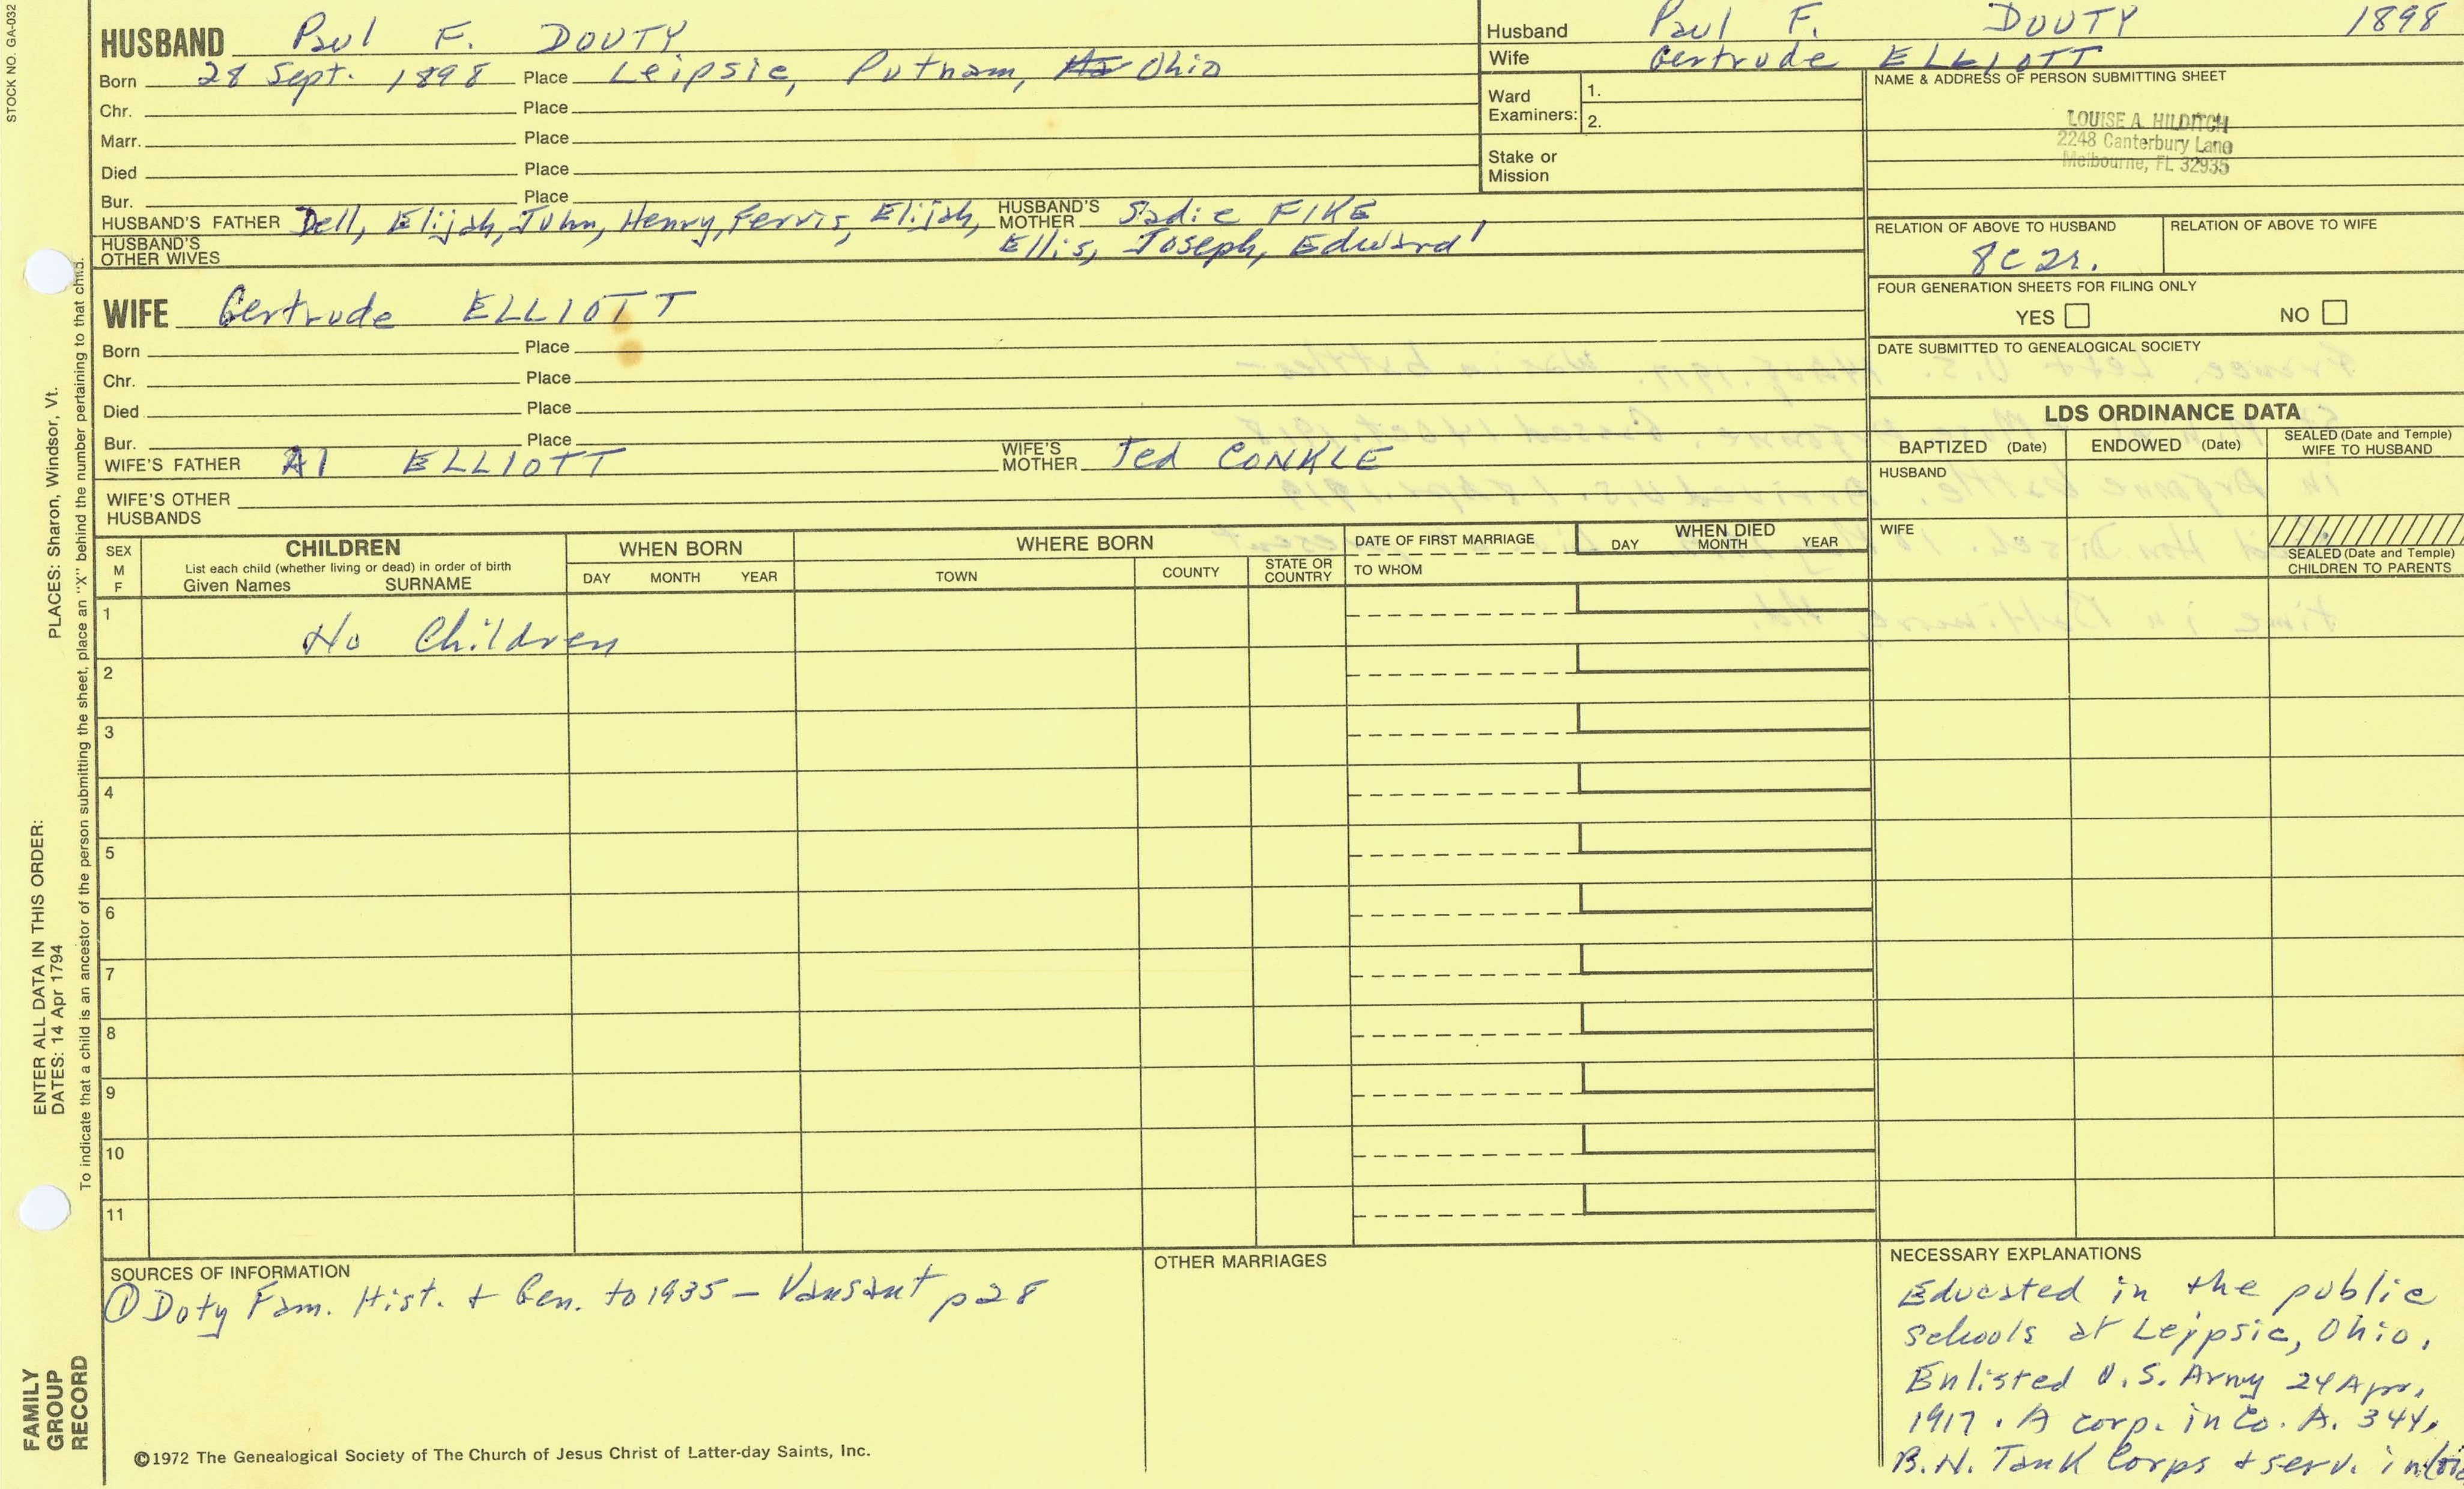 STOCK NO. GA-032
HUSBAND Paul F. DOUTY
Born 28 Sept. 1898 Place Leipsic, Putnam, Ohio
Chr. Place
Marr. Place
Died Place
Bur. Place
HUSBAND'S FATHER Dell, Elijah, John, Henry, Fervis, Elijah, HUSBAND'S MOTHER Sadie FIKE
Ellis, Joseph, Edward'
HUSBAND'S OTHER WIVES
Husband Paul F. DOUTY 1898
Wife Gertrude ELLIOTT
Ward Examiners: 1.
2.
Stake or Mission
NAME & ADDRESS OF PERSON SUBMITTING SHEET
LOUISE A. HILDITCH
2248 Canterbury Lane
Melbourne, FL 32935
RELATION OF ABOVE TO HUSBAND RELATION OF ABOVE TO WIFE
8c 2r.
FOUR GENERATION SHEETS FOR FILING ONLY
YES NO
DATE SUBMITTED TO GENEALOGICAL SOCIETY
WIFE Gertrude ELLIOTT
Born Place
Chr. Place
Died Place
Bur. Place
WIFE'S FATHER Al ELLIOTT WIFE'S MOTHER Ted CONKLE
WIFE'S OTHER HUSBANDS
LDS ORDINANCE DATA
BAPTIZED (Date) ENDOWED (Date) SEALED (Date and Temple) WIFE TO HUSBAND
HUSBAND
WIFE
SEALED (Date and Temple) CHILDREN TO PARENTS
SEX M F
CHILDREN
List each child (whether living or dead) in order of birth
Given Names SURNAME
WHEN BORN
DAY MONTH YEAR
WHERE BORN
TOWN COUNTY STATE OR COUNTRY
DATE OF FIRST MARRIAGE
TO WHOM
WHEN DIED
DAY MONTH YEAR
1 No Children
2
3
4
5
6
7
8
9
10
11
SOURCES OF INFORMATION
① Doty Fam. Hist. + Gen. to 1935 – Vansant p 28
OTHER MARRIAGES
NECESSARY EXPLANATIONS
Educated in the public
schools at Leipsic, Ohio.
Enlisted U.S. Army 24 Apr.
1917. A corp. in Co. A. 344,
B.N. Tank Corps + serv. in
©1972 The Genealogical Society of The Church of Jesus Christ of Latter-day Saints, Inc.
FAMILY
GROUP
RECORD
ENTER ALL DATA IN THIS ORDER:
DATES: 14 Apr 1794
PLACES: Sharon, Windsor, Vt.
To indicate that a child is an ancestor of the person submitting the sheet, place an "X" behind the number pertaining to that child.